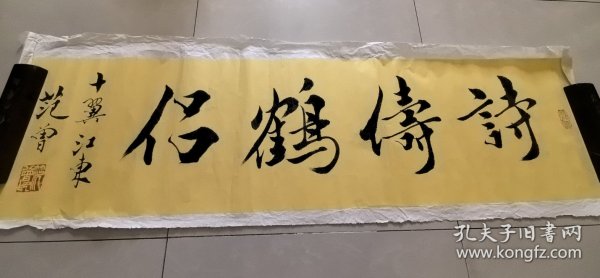 詩儔鶴侣
十翼江東
范曾
孔夫子旧书网
www.kongfz.com